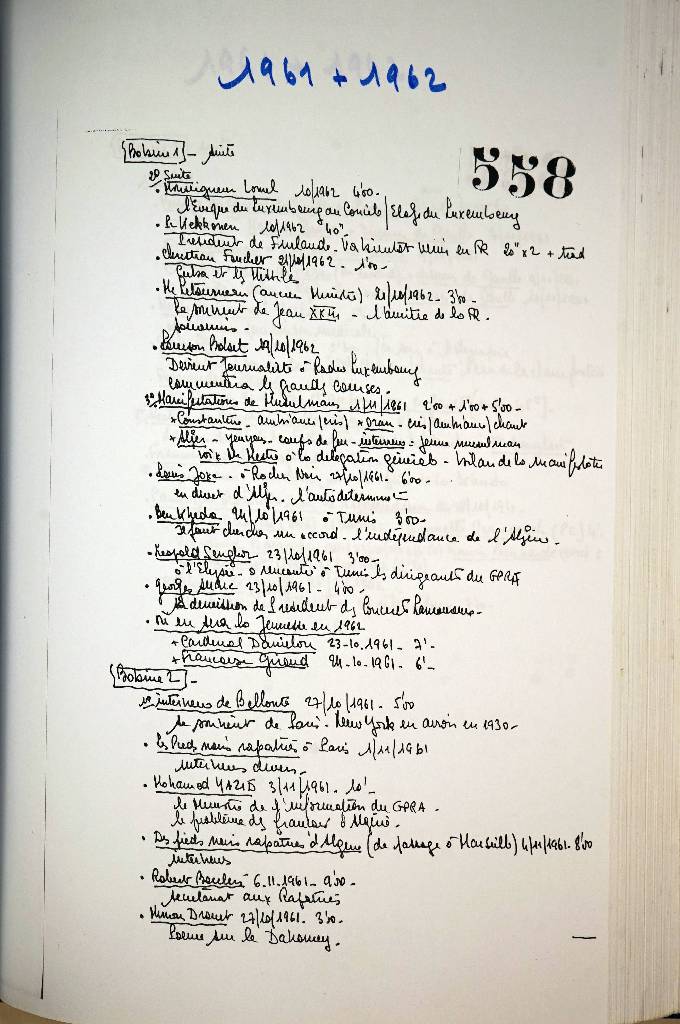 1961 + 1962
Bobine 1 - suite
558
2° Suite
• Monseigneur Lomel 10/1962 4'00 -
l'Evêque du Luxembourg au Concile / Eloge du Luxembourg
• Kekkonen 10/1962 40" -
President de Finlande - Va bientot venir en FR 20" x 2 + trad
• Christian Fouchet 21/10/1962 - 1'00 -
Cuba et les Missiles
• Mr Letourneau (ancien Ministre) 20/10/1962 - 3'00 -
Se souvient de Jean XXIII - l'ami de la FR.
souvenirs -
• Louison Bobet 19/10/1962
Devient Journaliste à Radio Luxembourg
commentera les grandes courses.
3° Manifestations de Musulmans 1/11/1961 2'00 + 1'00 + 5'00 -
* Constantine - ambiance (cris) * Oran - cris/ambiance/chant
* Alger - youyous - coups de feu - interview = jeune musulman
voix à la délégation générale - bilan de la manifestation
• Louis Joxe - à Rocher Noir 27/10/1961 - 6'00 -
en direct d'Alger - l'autodetermination
• Ben Kheda 24/10/1961 à Tunis 3'00 -
Il faut chercher un accord - l'indépendance de l'Algérie -
• Leopold Senghor 23/10/1961 3'00 -
à l'Elysée - a rencontré à Tunis les dirigeants du GPRA
• Georges Auric 23/10/1961 - 4'00 -
la demission de President des Concerts Lamoureux -
• Où en sera la Jeunesse en 1962
+ Cardinal Danielou 23-10-1961 - 7' -
+ Françoise Giroud 24-10-1961 - 6' -
Bobine 2 -
1° interviews de Bellonte 27/10/1961 - 5'00
se souvient de Paris - New York en avion en 1930 -
• Les Pieds noirs rapatriés à Paris 1/11/1961
interviews divers -
• Mohamed YAZID 3/11/1961 - 10' -
le Ministre de l'information du GPRA -
le problème des français d'Algérie -
• Des pieds noirs rapatriés d'Algérie (de passage à Marseille) 4/11/1961 - 8'00
interviews
• Robert Boulin 6.11.1961 - 9'00 -
secretariat aux Rapatriés
• Minou Drouet 27/10/1961 - 3'00 -
Poème sur le Dahomey -